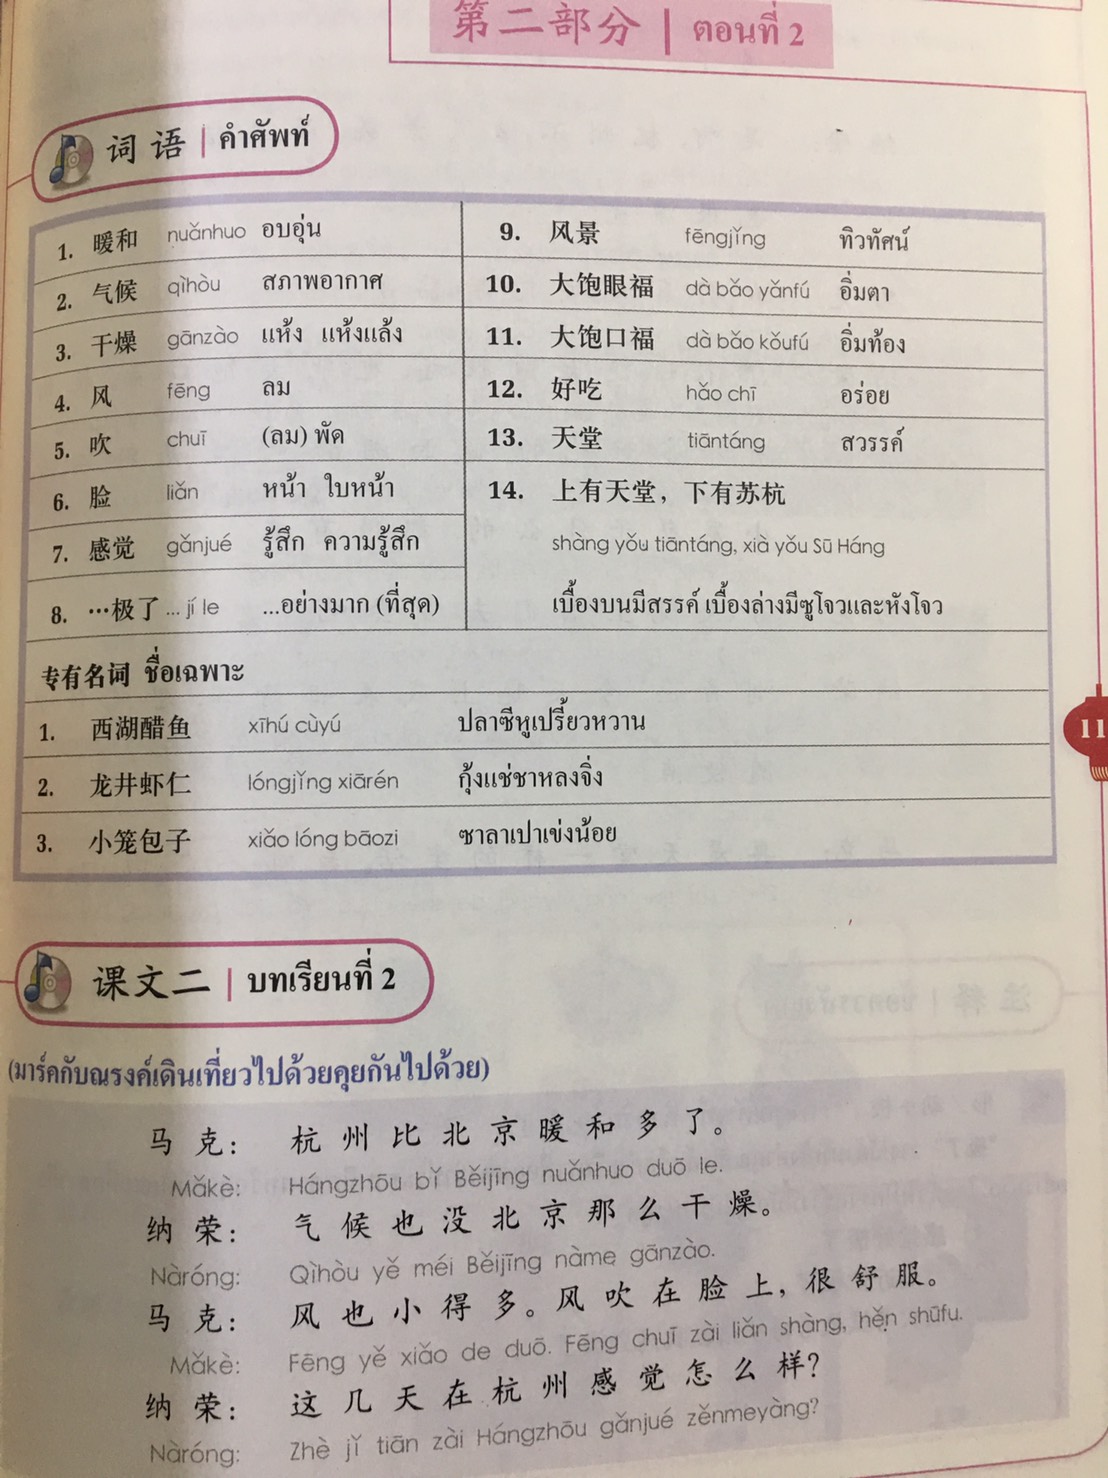 第二部分 | ตอนที่ 2
词语 | คำศัพท์
1. 暖和 nuǎnhuo อบอุ่น
2. 气候 qìhòu สภาพอากาศ
3. 干燥 gānzào แห้ง แห้งแล้ง
4. 风 fēng ลม
5. 吹 chuī (ลม) พัด
6. 脸 liǎn หน้า ใบหน้า
7. 感觉 gǎnjué รู้สึก ความรู้สึก
8. …极了 ... jí le ...อย่างมาก (ที่สุด)
9. 风景 fēngjǐng ทิวทัศน์
10. 大饱眼福 dà bǎo yǎnfú อิ่มตา
11. 大饱口福 dà bǎo kǒufú อิ่มท้อง
12. 好吃 hǎo chī อร่อย
13. 天堂 tiāntáng สวรรค์
14. 上有天堂，下有苏杭
shàng yǒu tiāntáng, xià yǒu Sū Háng
เบื้องบนมีสรรค์ เบื้องล่างมีซูโจวและหังโจว
专有名词 ชื่อเฉพาะ
1. 西湖醋鱼 xīhú cùyú ปลาซีหูเปรี้ยวหวาน
2. 龙井虾仁 lóngjǐng xiārén กุ้งแช่ชาหลงจิ่ง
3. 小笼包子 xiǎo lóng bāozi ซาลาเปาเข่งน้อย
11
课文二 | บทเรียนที่ 2
(มาร์คกับณรงค์เดินเที่ยวไปด้วยคุยกันไปด้วย)
马克： 杭州比北京暖和多了。
Mǎkè: Hángzhōu bǐ Běijīng nuǎnhuo duō le.
纳荣： 气候也没北京那么干燥。
Nàróng: Qìhòu yě méi Běijīng nàme gānzào.
马克： 风也小得多。风吹在脸上，很舒服。
Mǎkè: Fēng yě xiǎo de duō. Fēng chuī zài liǎn shàng, hěn shūfu.
纳荣： 这几天在杭州感觉怎么样？
Nàróng: Zhè jǐ tiān zài Hángzhōu gǎnjué zěnmeyàng?